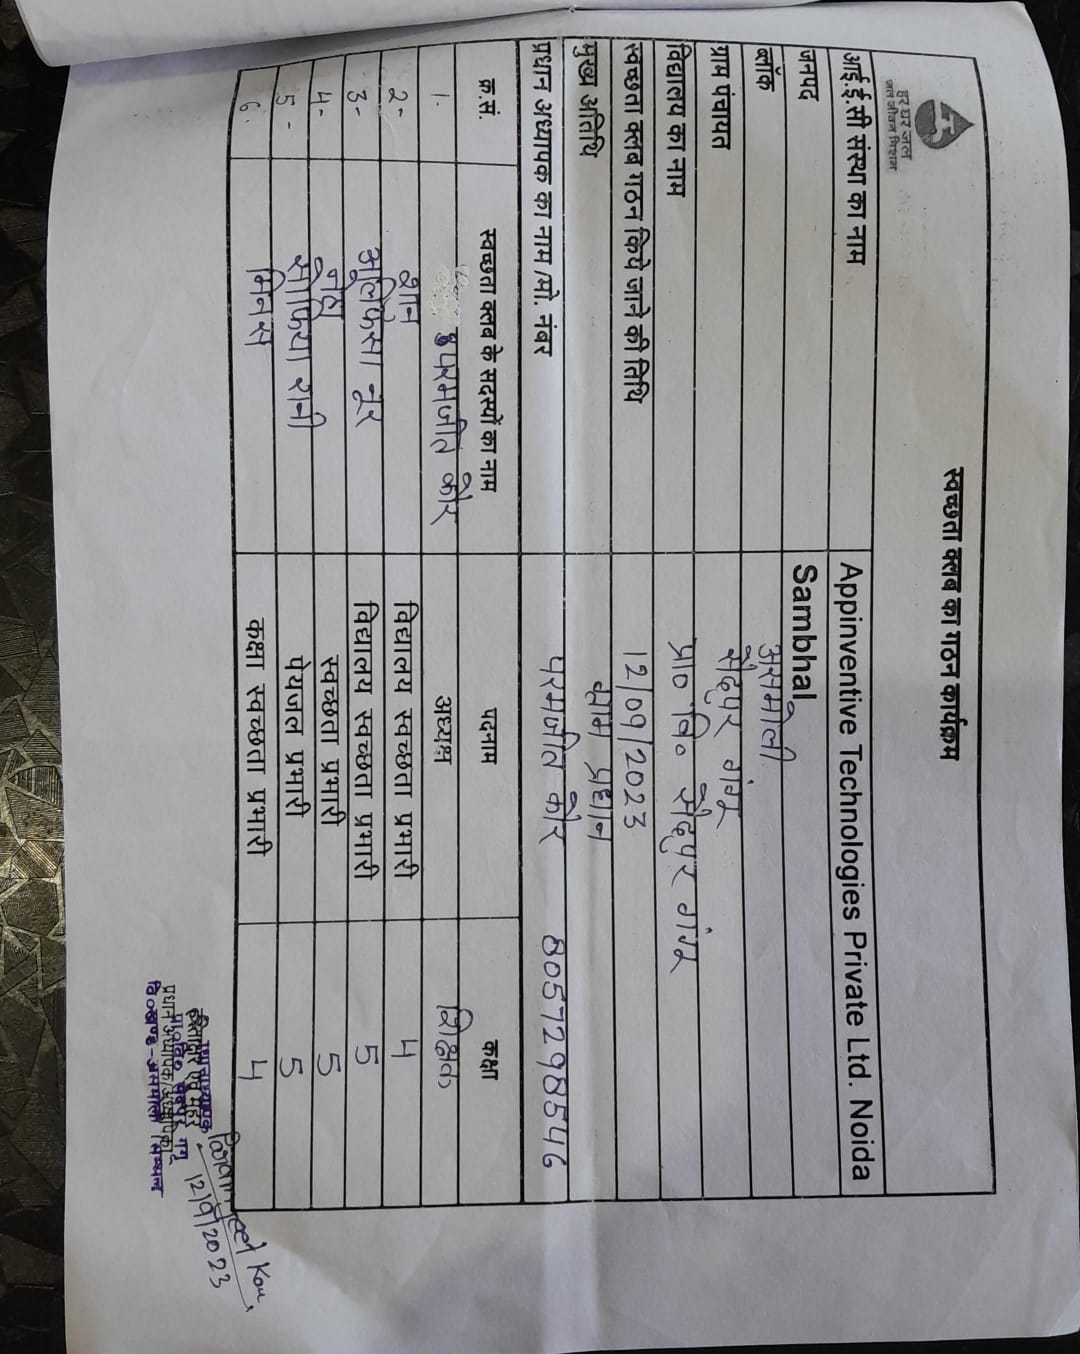 हर घर जल
जल जीवन मिशन
स्वच्छता क्लब का गठन कार्यक्रम
आई.ई.सी संस्था का नाम Appinventive Technologies Private Ltd. Noida
जनपद Sambhal
ब्लॉक असमोली
ग्राम पंचायत सैदपुर गंगू
विद्यालय का नाम प्रा० वि० सैदपुर गंगू
स्वच्छता क्लब गठन किये जाने की तिथि 12/09/2023
मुख्य अतिथि ग्राम प्रधान
प्रधान अध्यापक का नाम /मो. नंबर परमजीत कौर 8057298546
क्र.सं. स्वच्छता क्लब के सदस्यों का नाम पदनाम कक्षा
1. परमजीत कौर अध्यक्ष शिक्षक
2- शान विद्यालय स्वच्छता प्रभारी 4
3- अलिफसा नूर विद्यालय स्वच्छता प्रभारी 5
4- स्वच्छता प्रभारी 5
5- सोफिया रानी पेयजल प्रभारी 5
6. कक्षा स्वच्छता प्रभारी 4
हस्ताक्षर एवं मुहर
प्रधान अध्यापक/अध्यापिका
12/9/2023